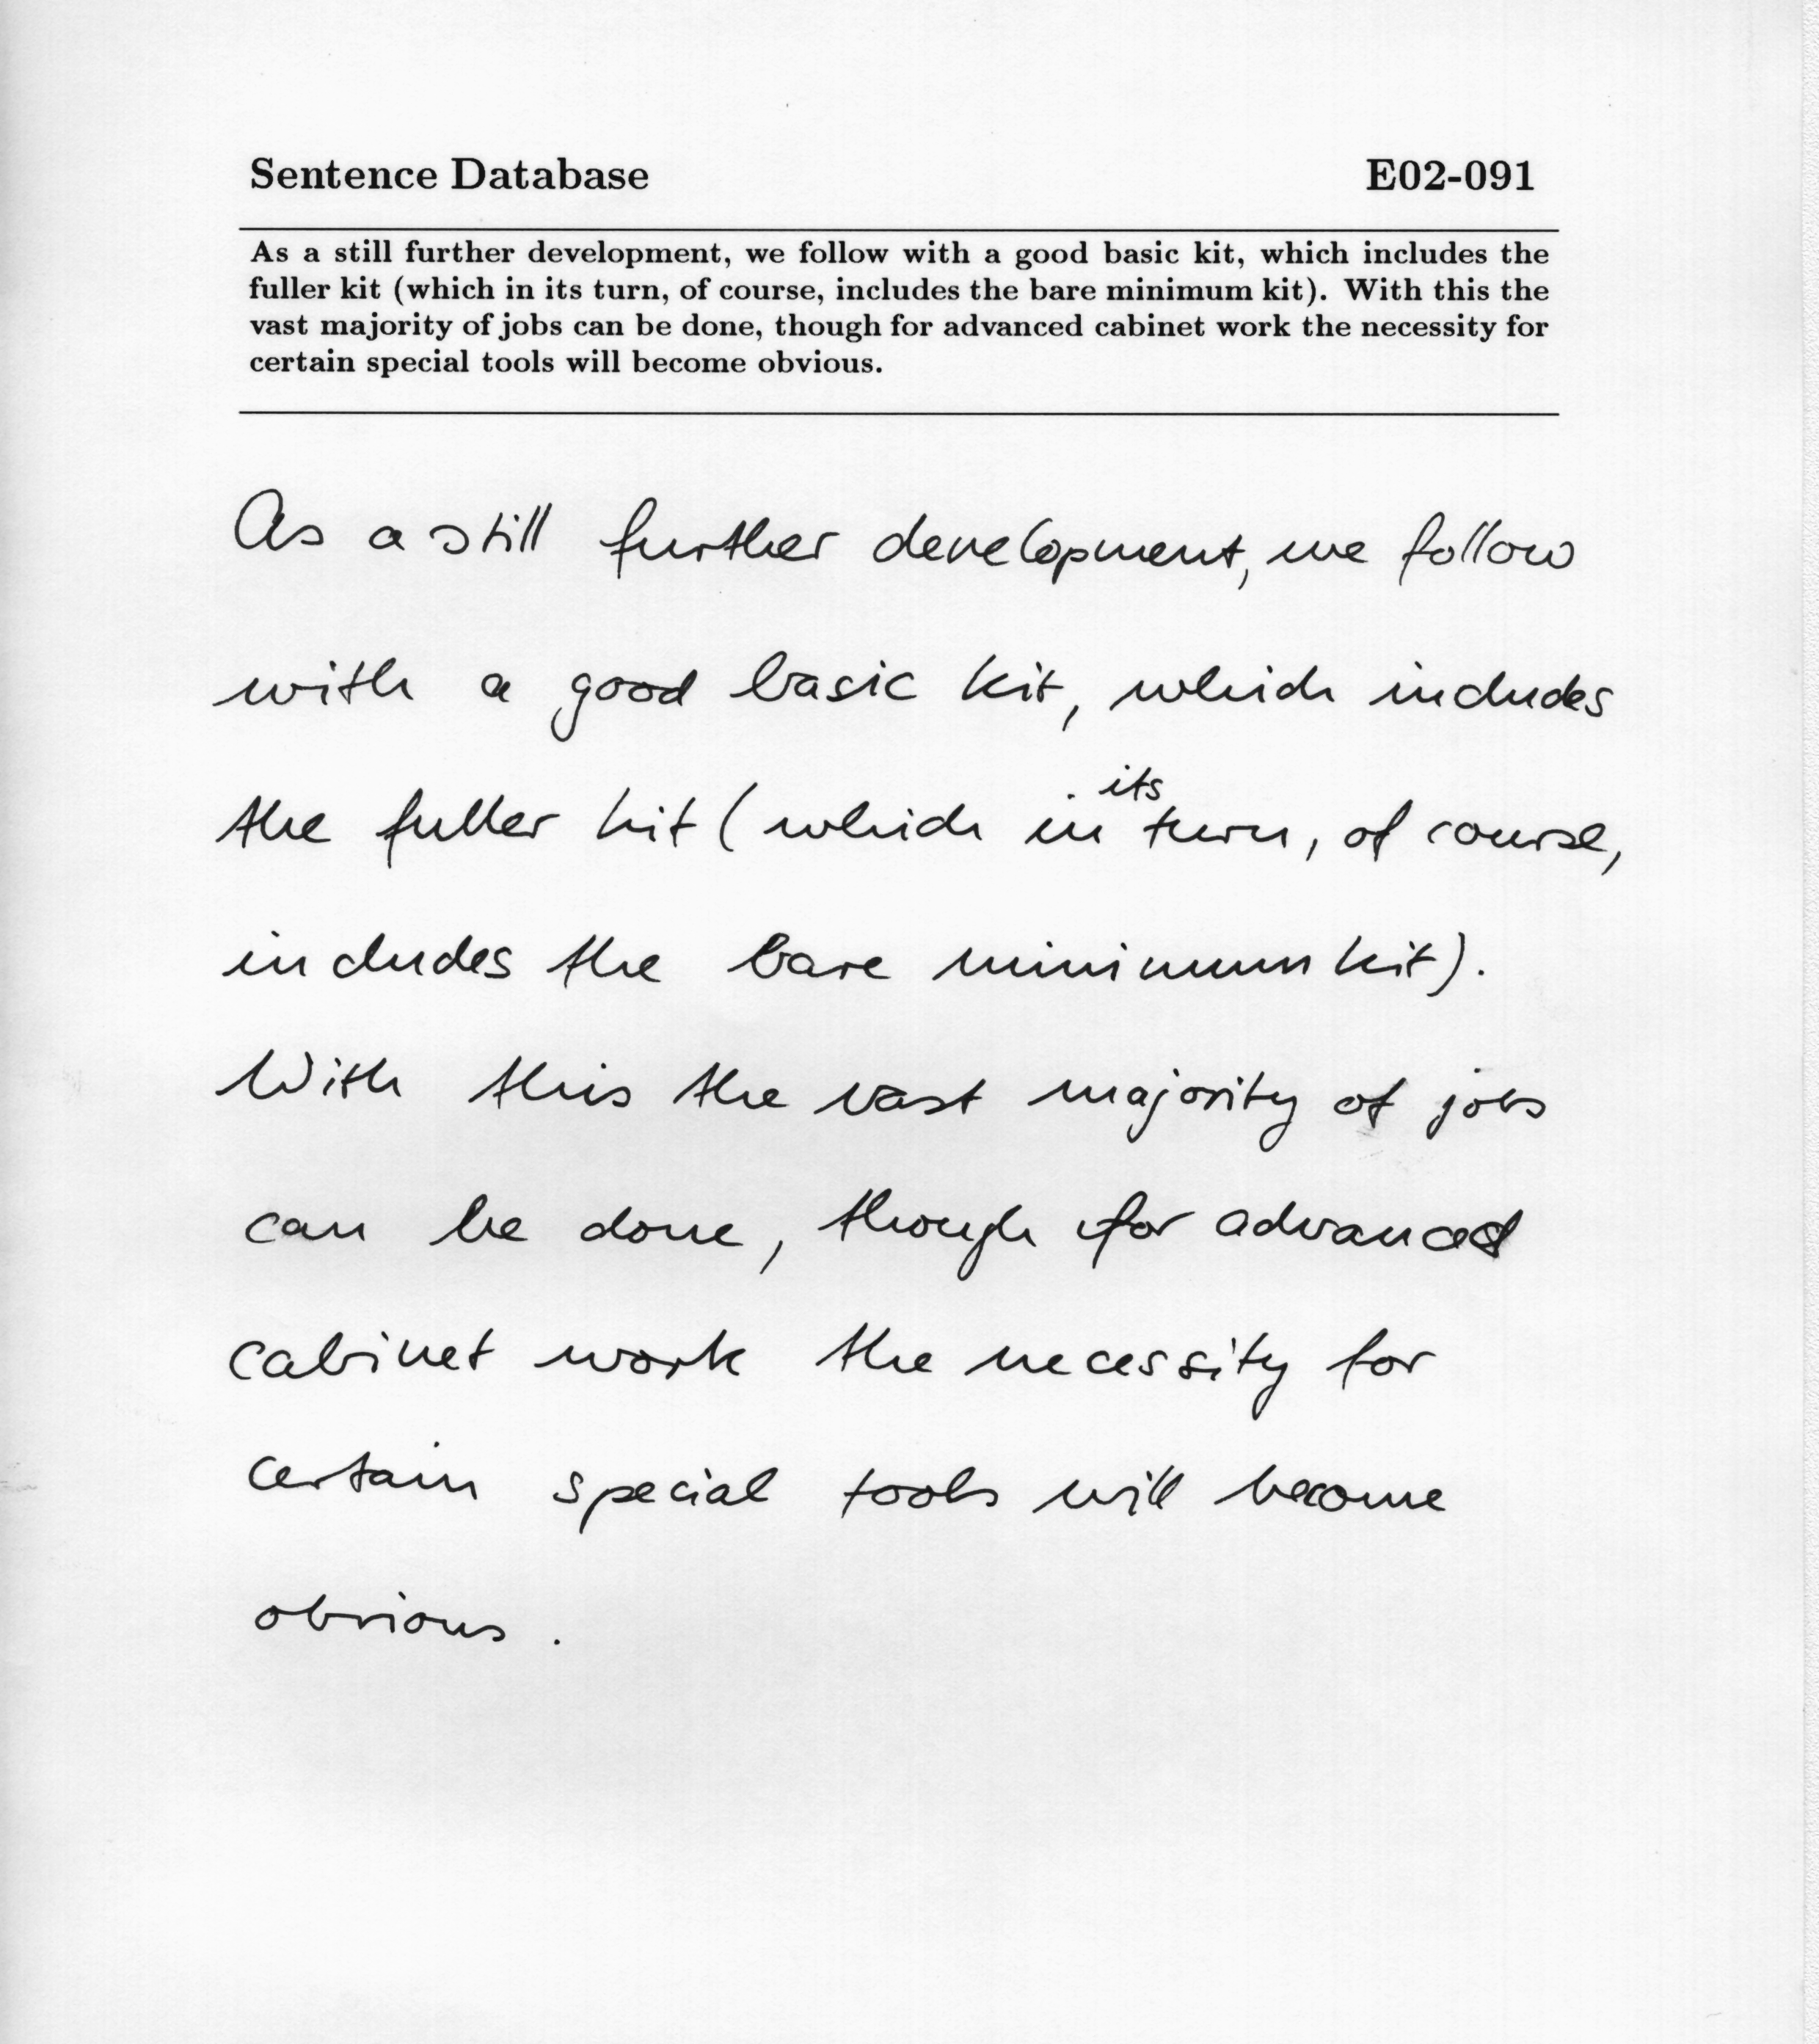 Sentence Database E02-091
As a still further development, we follow with a good basic kit, which includes the
fuller kit (which in its turn, of course, includes the bare minimum kit). With this the
vast majority of jobs can be done, though for advanced cabinet work the necessity for
certain special tools will become obvious.
As a still further development, we follow
with a good basic kit, which includes
the fuller kit (which in its turn, of course,
includes the bare minimum kit).
With this the vast majority of jobs
can be done, though for advanced
cabinet work the necessity for
certain special tools will become
obvious.